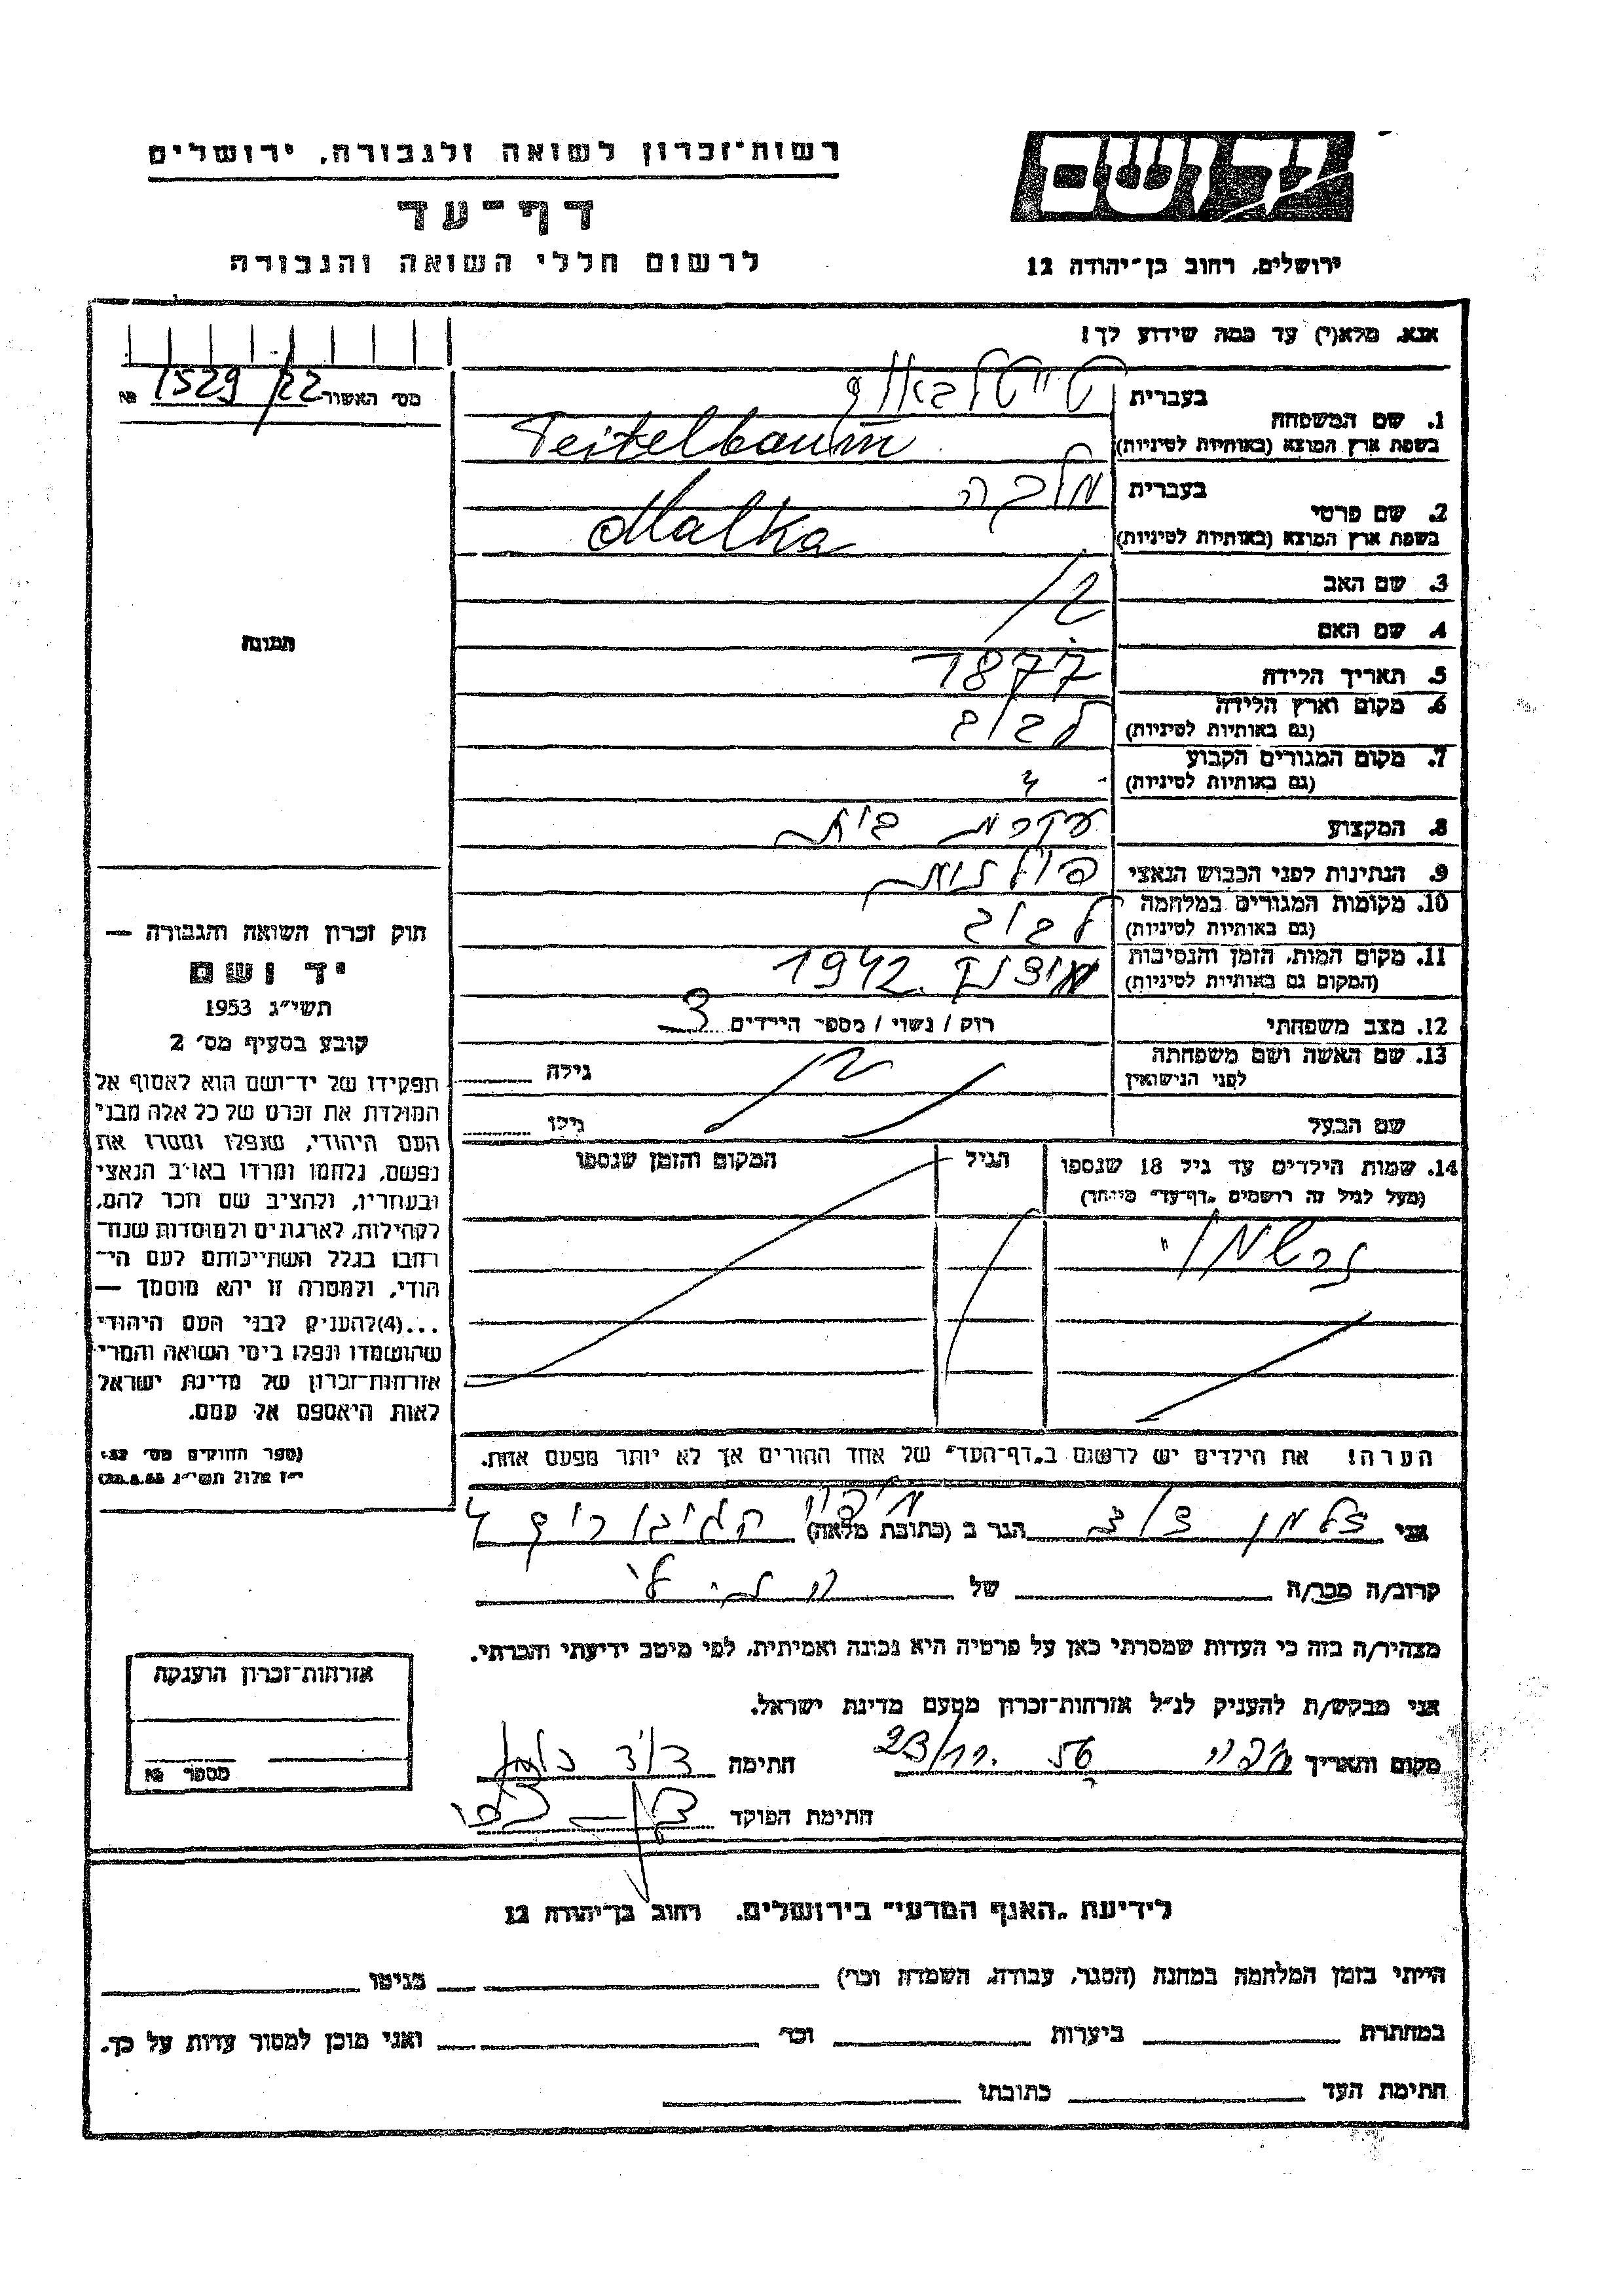 יד ושם
רשות־זכרון לשואה ולגבורה, ירושלים
דף־עד
לרשום חללי השואה והגבורה
ירושלים, רחוב בן־יהודה 12
אנא, מלא(י) עד כמה שידוע לך!
מס׳ האשור 1529/22 №
1. שם המשפחה
בעברית טייטלבאום
בשפת ארץ המוצא (באותיות לטיניות) Teitelbaum
2. שם פרטי
בעברית מלכה
בשפת ארץ המוצא (באותיות לטיניות) Malka
3. שם האב
4. שם האם
5. תאריך הלידה 1877
6. מקום וארץ הלידה לבוב
(גם באותיות לטיניות)
7. מקום המגורים הקבוע
(גם באותיות לטיניות)
8. המקצוע עקרת בית
9. הנתינות לפני הכבוש הנאצי פולנית
10. מקומות המגורים במלחמה לבוב
(גם באותיות לטיניות)
11. מקום המות, הזמן והנסיבות 1942
(המקום גם באותיות לטיניות)
12. מצב משפחתי רוק / נשוי / מספר הילדים 3
13. שם האשה ושם משפחתה
לפני הנישואין
גילה
שם הבעל
גילו
14. שמות הילדים עד גיל 18 שנספו
(מעל לגיל זה רושמים „דף־עד" מיוחד)
הגיל
המקום והזמן שנספו
הערה! את הילדים יש לרשום ב„דף־העד" של אחד ההורים אך לא יותר מפעם אחת.
תמונה
חוק זכרון השואה והגבורה —
יד ושם
תשי״ג 1953
קובע בסעיף מס׳ 2
תפקידו של יד־ושם הוא לאסוף אל
המולדת את זכרם של כל אלה מבני
העם היהודי, שנפלו ומסרו את
נפשם, נלחמו ומרדו באויב הנאצי
ובעוזריו, ולהציב שם וזכר להם,
לקהילות, לארגונים ולמוסדות שנח־
רבו בגלל השתייכותם לעם הי־
הודי, ולמטרה זו יהא מוסמך —
...(4)להעניק לבני העם היהודי
שהושמדו ונפלו בימי השואה והמרי
אזרחות־זכרון של מדינת ישראל
לאות היאספם אל עמם.
(ספר החוקים מס׳ 132
י״ז אלול תשי״ג 28.8.53)
אני זלמן הגר ב (כתובת מלאה) חיפה
קרוב/ה מכר/ה של
מצהיר/ה בזה כי העדות שמסרתי כאן על פרטיה היא נכונה ואמיתית, לפי מיטב ידיעתי והכרתי.
אני מבקש/ת להעניק לנ״ל אזרחות־זכרון מטעם מדינת ישראל.
מקום ותאריך חיפה 23/11.56 חתימה
חתימת הפוקד
אזרחות־זכרון הוענקה
מספר №
לידיעת „האגף המדעי" בירושלים, רחוב בן־יהודה 12
הייתי בזמן המלחמה במחנה (הסגר, עבודה, השמדה וכר׳) בגיטו
במחתרת ביערות וכר׳ ואני מוכן למסור עדות על כך.
חתימת העד כתובתו